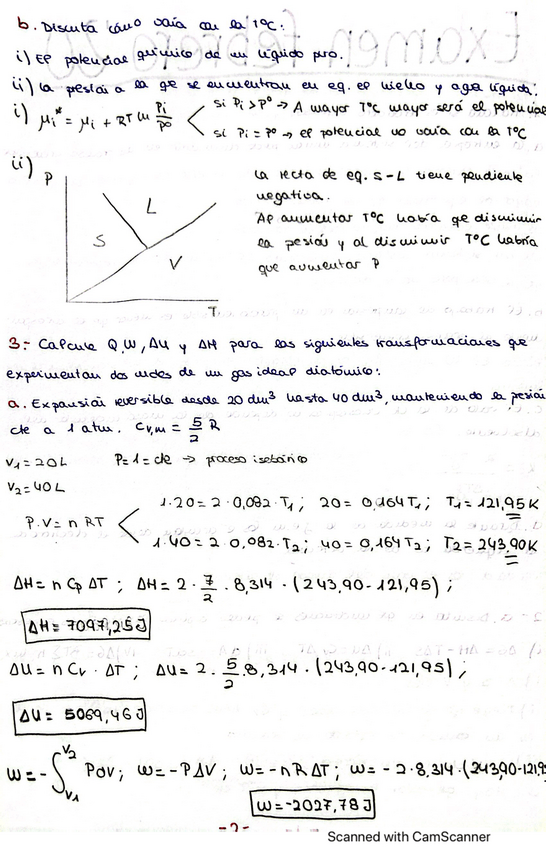 b. Discuta cómo varía con la TºC:
i) El potencial químico de un líquido puro.
ii) La presión a la qe se encuentran en eq. el hielo y agua líquida:
i) μi* = μi + RT ln Pi/Pº < si Pi > Pº → A mayor TºC mayor será el potencial
si Pi = Pº → el potencial no varía con la TºC
ii) P
L
S
V
T
La recta de eq. S-L tiene pendiente
negativa.
Al aumentar TºC habría qe disminuir
la presión y al disminuir TºC habría
que aumentar P
3.- Calcule Q, W, ΔU y ΔH para las siguientes transformaciones qe
experimentan dos moles de un gas ideal diatómico:
a. Expansión reversible desde 20 dm³ hasta 40 dm³, manteniendo la presión
cte a 1 atm. Cv,m = 5/2 R
V1 = 20 L P = 1 = cte → proceso isobárico
V2 = 40 L
P·V = n RT < 1·20 = 2·0,082·T1; 20 = 0,164 T1; T1 = 121,95 K
1·40 = 2·0,082·T2; 40 = 0,164 T2; T2 = 243,90 K
ΔH = n Cp ΔT; ΔH = 2· 7/2 ·8,314·(243,90-121,95);
ΔH = 7097,25 J
ΔU = n Cv·ΔT; ΔU = 2· 5/2 ·8,314·(243,90-121,95);
ΔU = 5069,46 J
W = -∫V1 V2 PdV; W = -PΔV; W = -nRΔT; W = -2·8,314·(243,90-121,95
W = -2027,78 J
-2-
Scanned with CamScanner